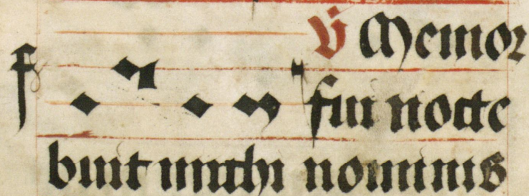 V̄ Memor
fui nocte
buit michi nominis